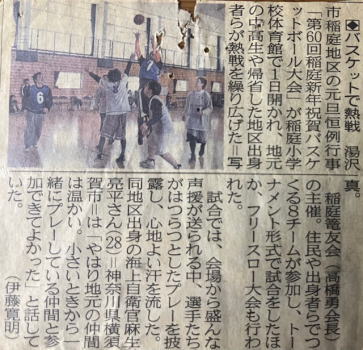 ◆バスケットで熱戦 湯沢
市稲庭地区の元旦恒例行事
「第60回稲庭新年祝賀バスケ
ットボール大会」が稲庭小学
校体育館で1日開かれ、地元
の中高生や帰省した地区出身
者らが熱戦を繰り広げた＝写
真。
稲庭篭友会（高橋勇会長）
の主催。住民や出身者らでつ
くる8チームが参加し、トー
ナメント形式で試合をしたほ
か、フリースロー大会も行わ
れた。
試合では、会場から盛んな
声援が送られる中、選手たち
がはつらつとしたプレーを披
露し、心地よい汗を流した。
同地区出身の海上自衛官麻生
亮平さん(28)＝神奈川県横須
賀市＝は「やはり地元の仲間
は温かい。小さいときから一
緒にプレーしている仲間と参
加できてよかった」と話して
いた。
（伊藤寛明）